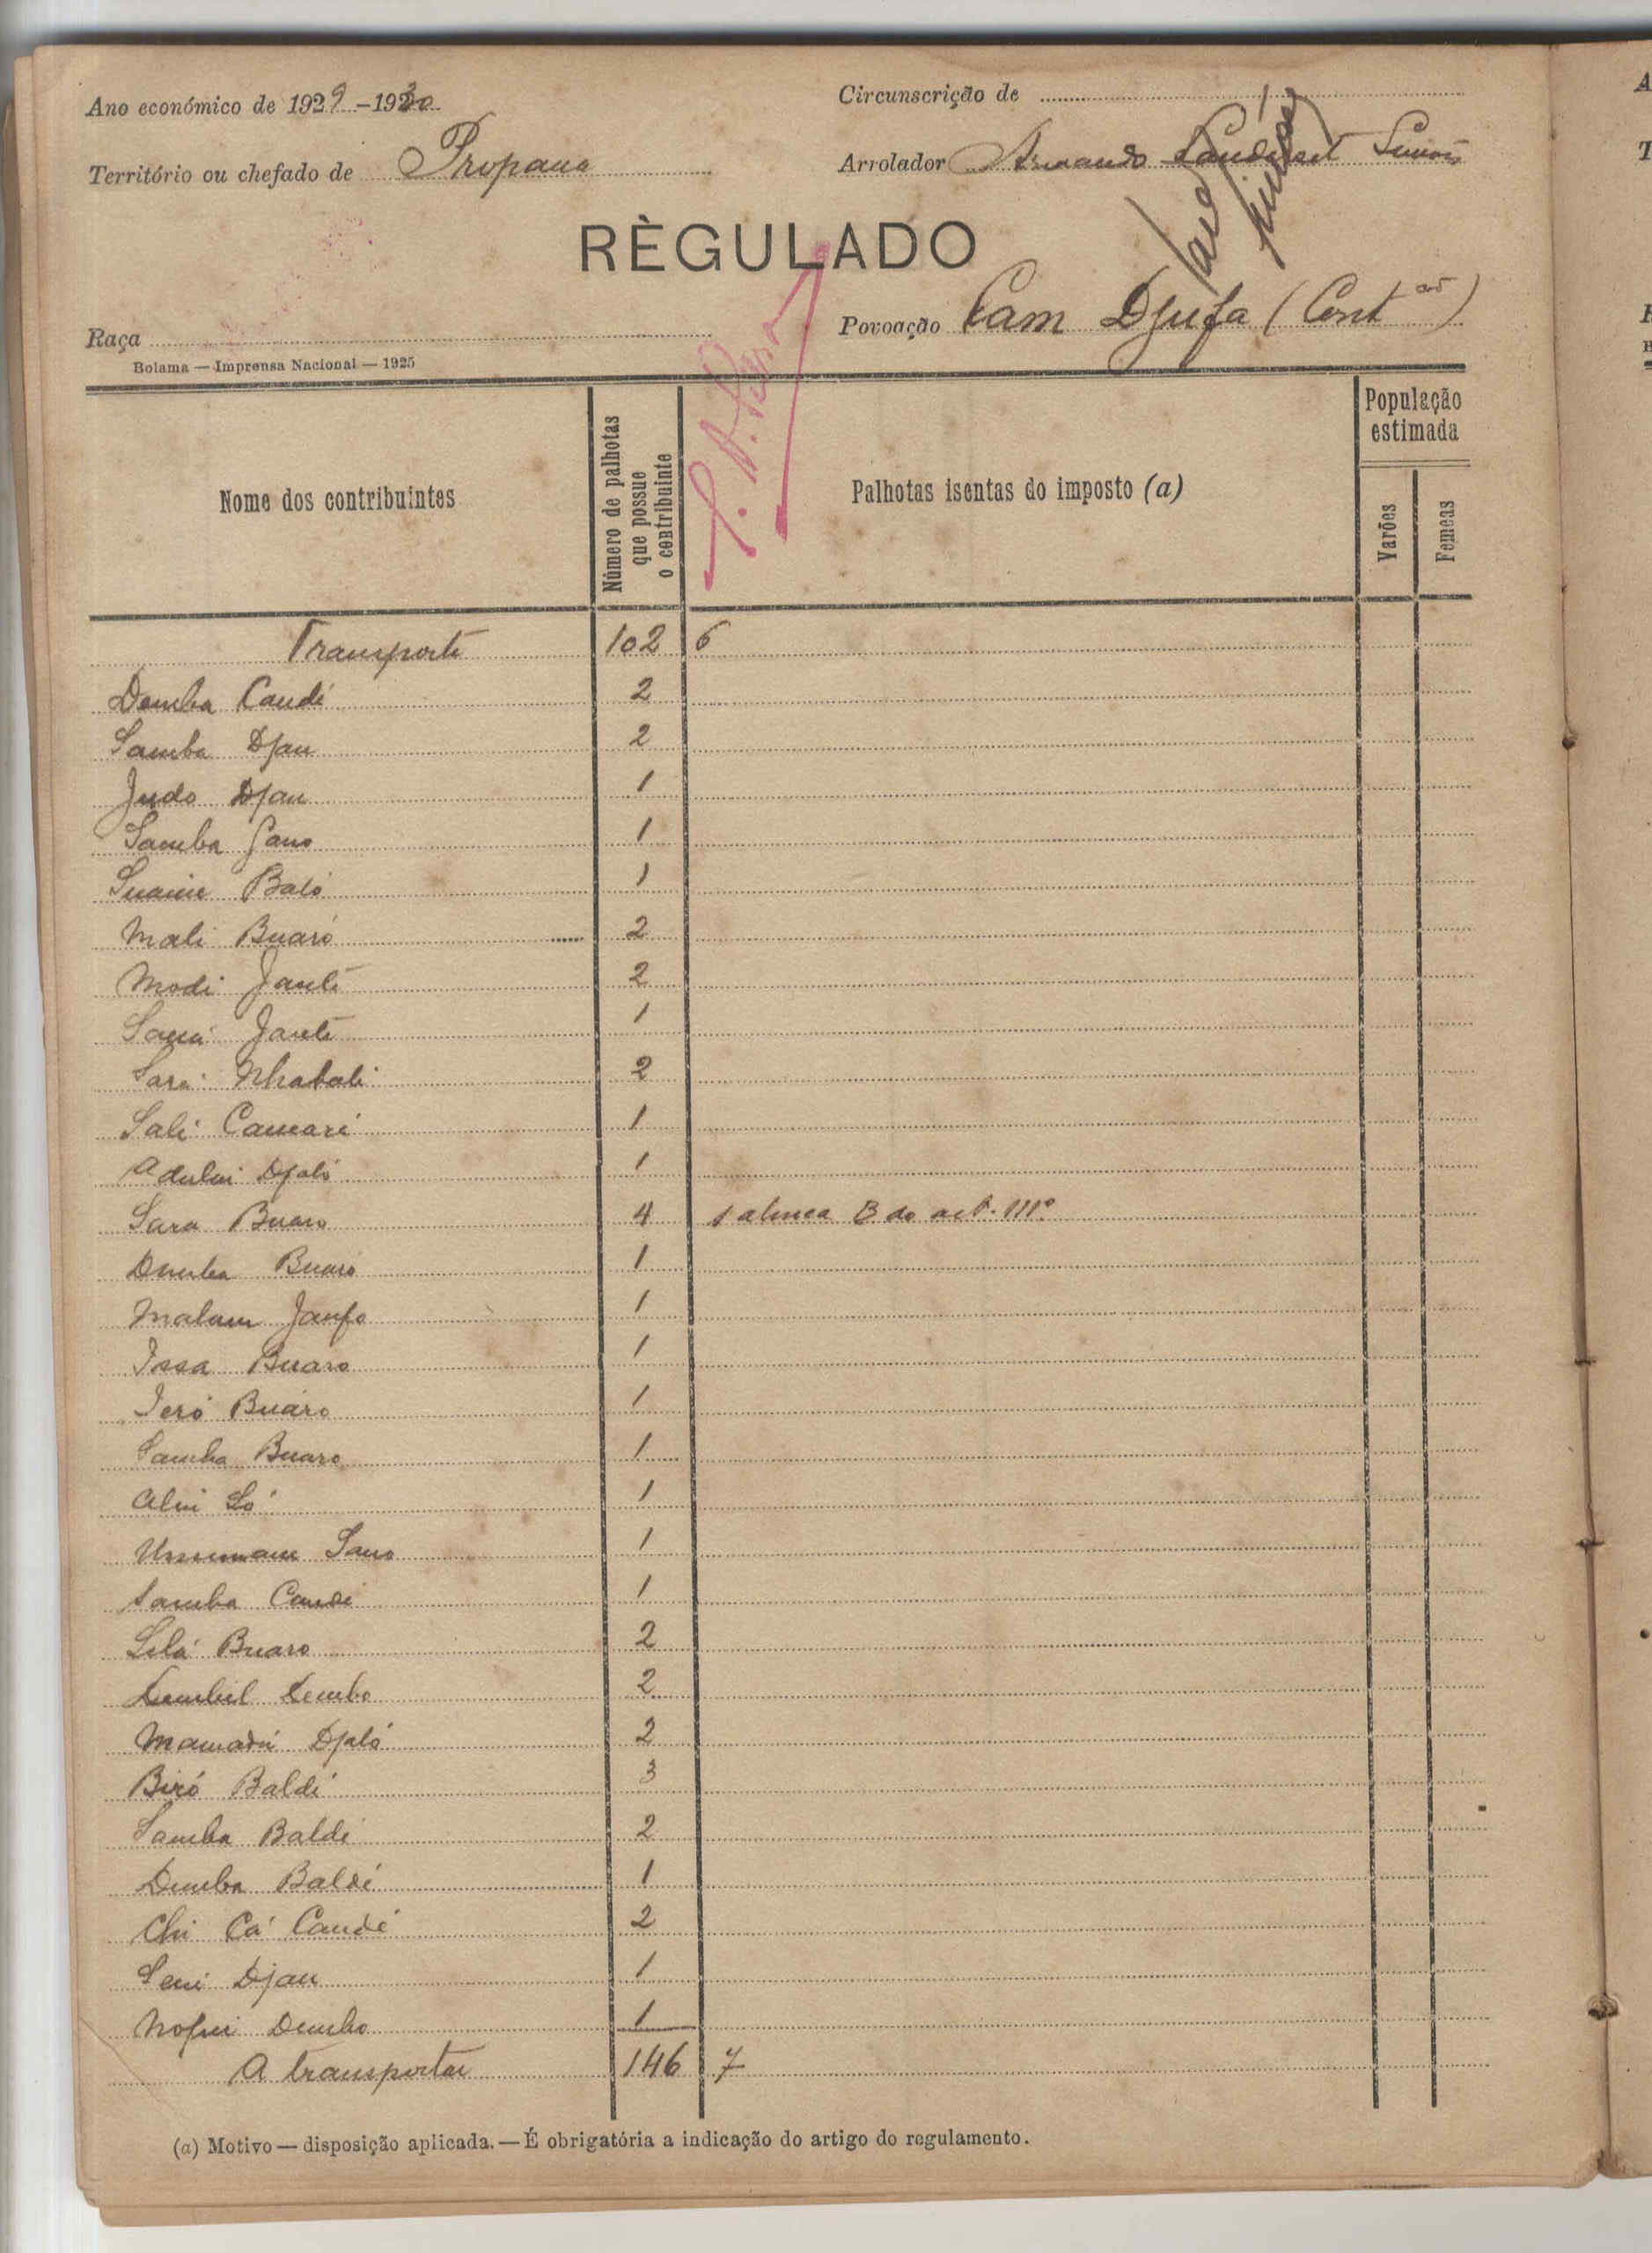 Ano económico de 1929-1930
Circunscrição de
Território ou chefado de Propana
Arrolador Armando
RÈGULADO
Raça
Povoação Cam Djufa (Cont ão)
Bolama — Imprensa Nacional — 1925
Nome dos contribuintes
Número de palhotas que possue o contribuinte
Palhotas isentas do imposto (a)
População estimada
Varões
Femeas
Transporte 102 6
Demba Candé 2
Samba Djau 2
Judo Djau 1
Samba Sano 1
Baló 1
Mali Buaró 2
Modi Janté 2
Janté 1
Sará Nhabali 2
Sali Camará 1
Adulai Djaló 1
Sara Buaro 4 1 alinea B do art. 111º
Demba Buaró 1
Malam Janfo 1
Issa Buaro 1
Jeró Buáro 1
Samba Buaro 1
Alui Só 1
Ussumane Sano 1
Samba Candé 1
Lilá Buaro 2
Dembo 2
Mamadú Djaló 2
Biró Baldé 3
Samba Baldé 2
Demba Baldé 1
Chi Cá Candé 2
Seni Djau 1
Dembo 1
A transportar 146 7
(a) Motivo — disposição aplicada. — É obrigatória a indicação do artigo do regulamento.